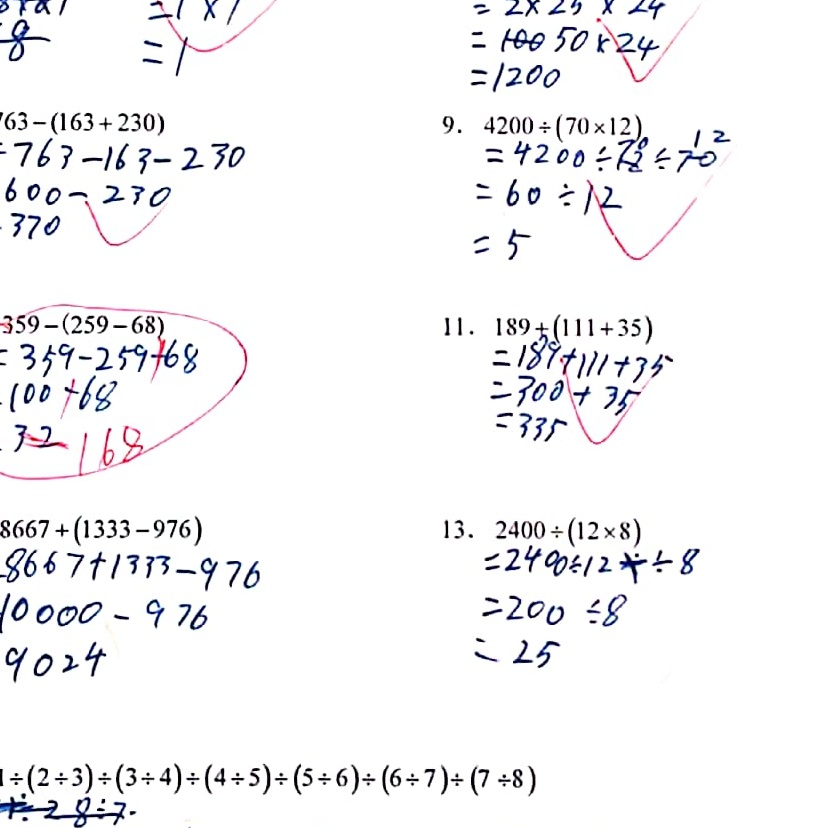 = 1 × 1
= 2 × 25 × 24
8
= 1
= 100 50 × 24
= 1200
763 − (163 + 230)
= 763 − 163 − 230
600 − 230
370
9. 4200 ÷ (70 × 12)
= 4200 ÷ 70 ÷ 12
= 60 ÷ 12
= 5
359 − (259 − 68)
= 359 − 259 + 68
100 + 68
32 168
11. 189 + (111 + 35)
= 189 + 111 + 35
= 300 + 35
= 335
8667 + (1333 − 976)
8667 + 1333 − 976
10000 − 976
9024
13. 2400 ÷ (12 × 8)
= 2400 ÷ 12 ÷ 8
= 200 ÷ 8
= 25
1 ÷ (2 ÷ 3) ÷ (3 ÷ 4) ÷ (4 ÷ 5) ÷ (5 ÷ 6) ÷ (6 ÷ 7) ÷ (7 ÷ 8)